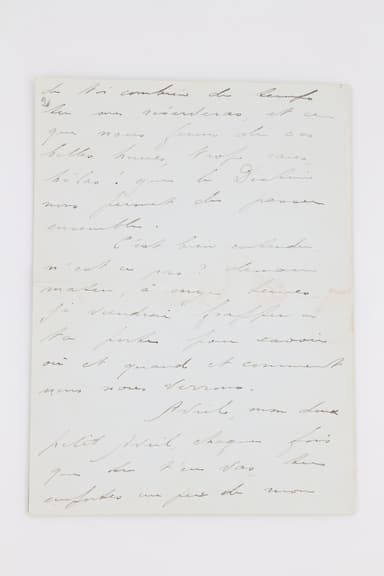 de toi combien de temps
tu me m'accorderas, et ce
que nous ferons de ces
belles heures, trop rares
hélas! que le Destin
nous permet de passer
ensemble.
C'est bien entendu
n'est ce pas? demain
matin, à onze heures
je viendrai frapper à
ta porte pour savoir
où et quand et comment
nous nous verrons.
mon doux
petit chaque fois
que tu t'en vas, tu
emportes un peu de mon